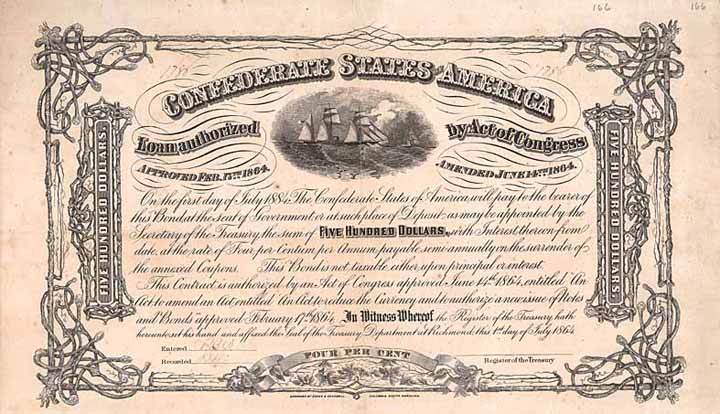 166 166
CONFEDERATE STATES AMERICA
Loan authorized by Act of Congress
APPROVED FEB. 17TH 1864. AMENDED JUNE 14TH 1864.
FIVE HUNDRED DOLLARS
FIVE HUNDRED DOLLARS
On the first day of July 1884, The Confederate States of America, will pay to the bearer of
this Bond at the seat of Government or at such place of Deposit as may be appointed by the
Secretary of the Treasury, the sum of FIVE HUNDRED DOLLARS with Interest thereon from
date, at the rate of Four per Centum per Annum, payable semi annually on the surrender of
the annexed Coupons. This Bond is not taxable either upon principal or interest.
This Contract is authorized by an Act of Congress approved June 14th 1864, entitled "An
Act to amend an Act, entitled An Act to reduce the Currency and to authorize a new issue of Notes
and Bonds approved February 17th 1864. In Witness Whereof the Register of the Treasury hath
hereunto set his hand and affixed the Seal of the Treasury Department at Richmond, this 1st day of July 1864
Entered
Recorded
FOUR PER CENT
Register of the Treasury
COLUMBIA SOUTH CAROLINA